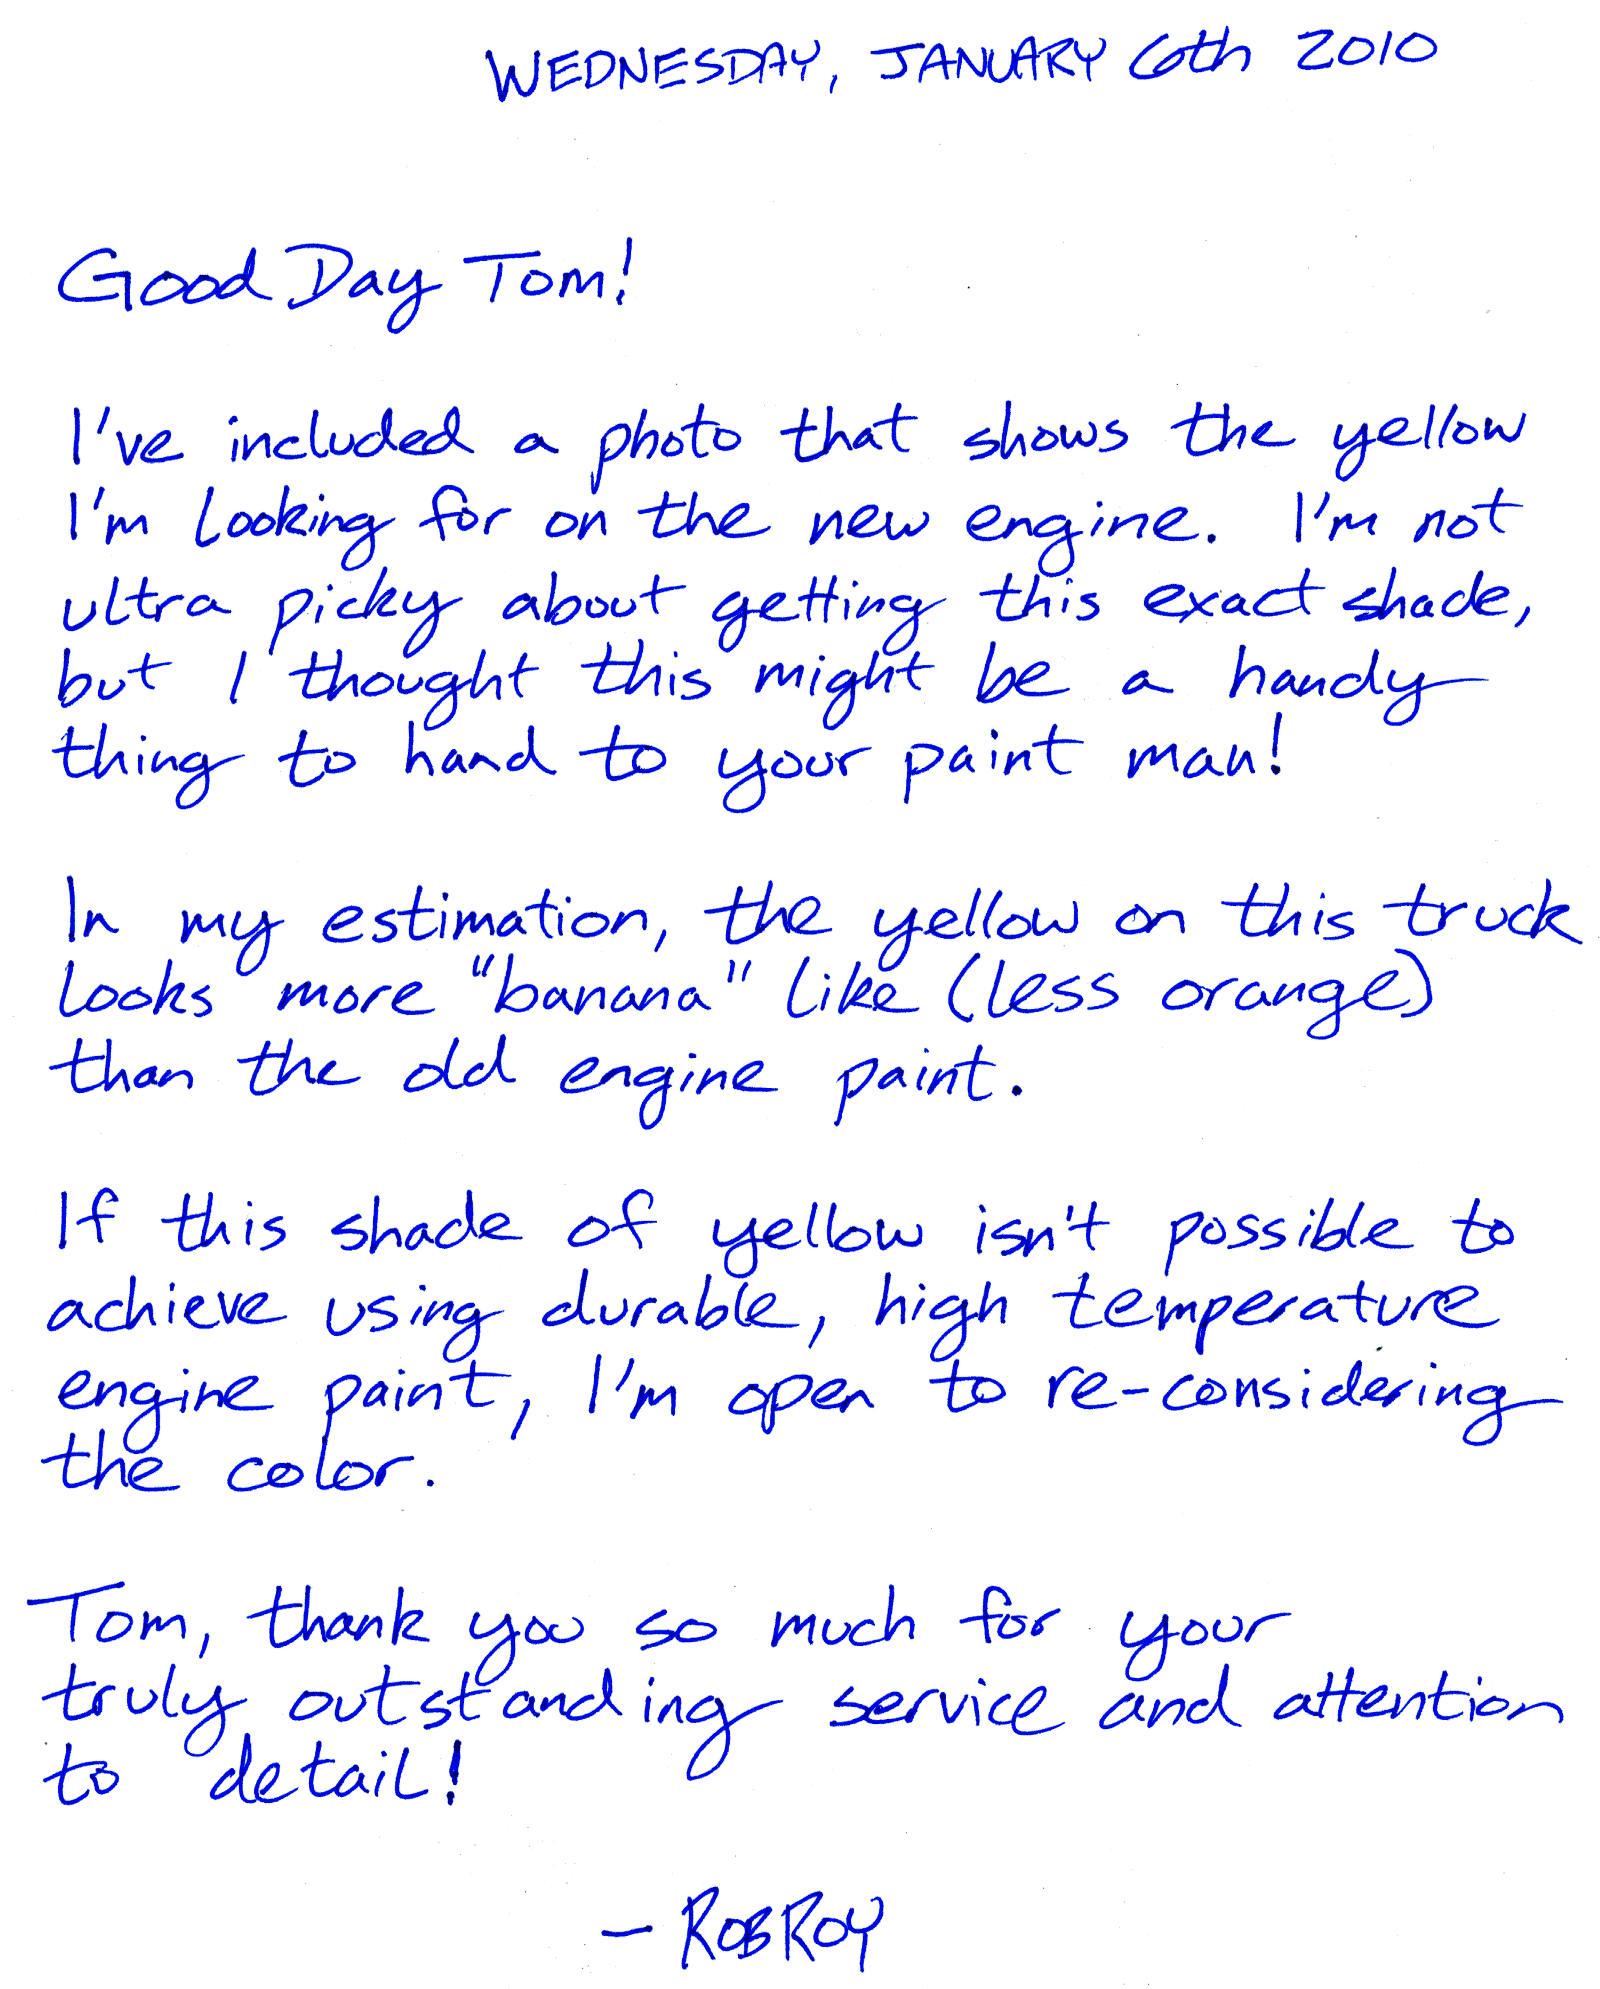 WEDNESDAY, JANUARY 6th 2010
Good Day Tom!
I've included a photo that shows the yellow
I'm looking for on the new engine. I'm not
ultra picky about getting this exact shade,
but I thought this might be a handy
thing to hand to your paint man!
In my estimation, the yellow on this truck
looks more "banana" like (less orange)
than the old engine paint.
If this shade of yellow isn't possible to
achieve using durable, high temperature
engine paint, I'm open to re-considering
the color.
Tom, thank you so much for your
truly outstanding service and attention
to detail!
— ROB ROY